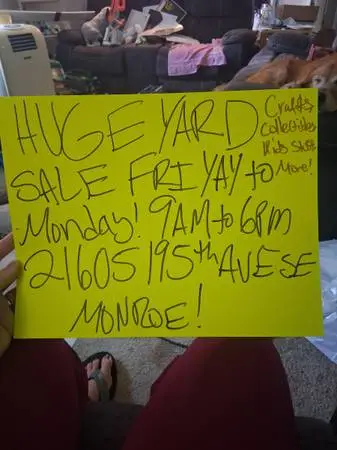 HUGE YARD
SALE FRIYAY to
Monday! 9AM to 6PM
21605 195th AVE SE
MONROE!
Crafts,
Collectibles
Kids Stuff
More!